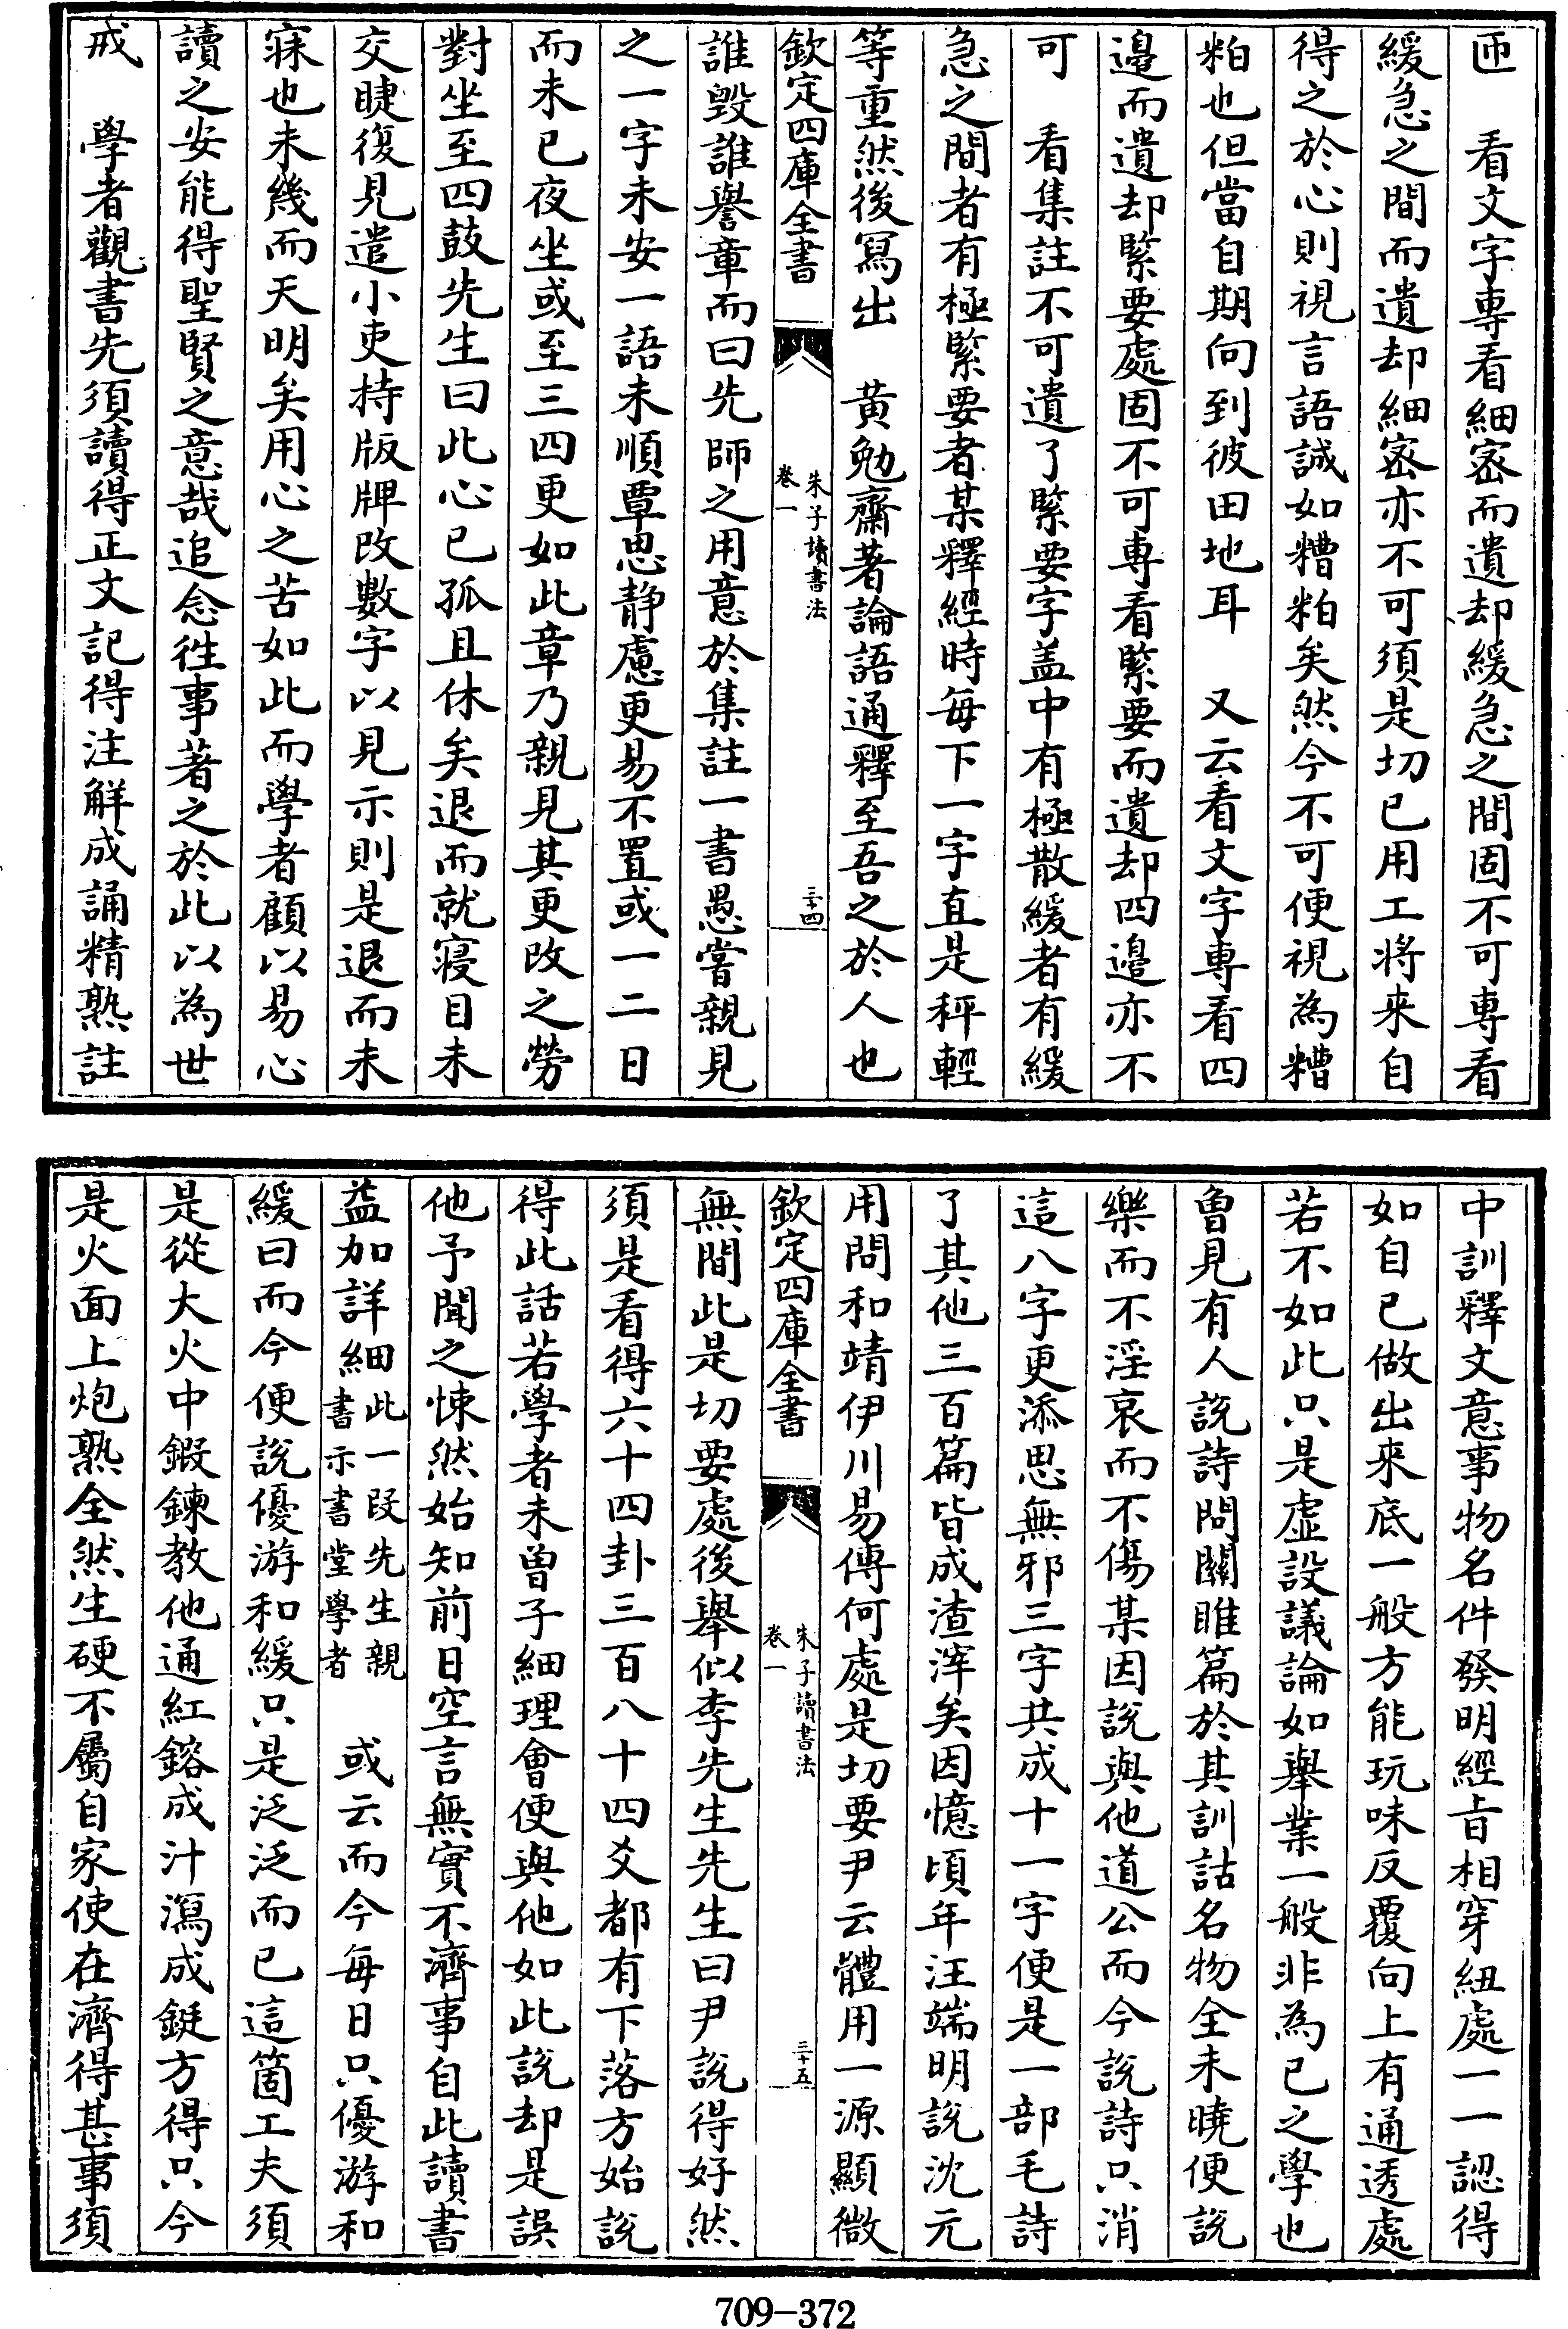 匝　看文字專看細密而遺却緩急之間固不可專看
緩急之間而遺却細密亦不可須是切已用工將来自
得之於心則視言語誠如糟粕矣然今不可便視為糟
粕也但當自期向到彼田地耳　又云看文字專看四
邉而遺却緊要處固不可專看緊要而遺却四邉亦不
可　看集註不可遺了緊要字盖中有極散緩者有緩
急之間者有極緊要者某釋經時每下一字直是秤輕
等重然後寫出　黄勉齋著論語通釋至吾之於人也
欽定四庫全書
朱子讀書法
卷一
三十四
誰毀誰譽章而曰先師之用意於集註一書愚嘗親見
之一字未安一語未順覃思静慮更易不置或一二日
而未已夜坐或至三四更如此章乃親見其更改之勞
對坐至四鼓先生曰此心已孤且休矣退而就寢目未
交睫復見遣小吏持版牌改數字以見示則是退而未
寐也未幾而天明矣用心之苦如此而學者顧以易心
讀之安能得聖賢之意哉追念徃事著之於此以為世
戒　學者觀書先須讀得正文記得注解成誦精熟註
中訓釋文意事物名件發明經旨相穿紐處一一認得
如自已做出来底一般方能玩味反覆向上有通透處
若不如此只是虛設議論如舉業一般非為已之學也
曾見有人説詩問關雎篇於其訓詁名物全未曉便説
樂而不淫哀而不傷某因説與他道公而今説詩只消
這八字更添思無邪三字共成十一字便是一部毛詩
了其他三百篇皆成渣滓矣因憶頃年汪端明説沈元
用問和靖伊川易傳何處是切要尹云體用一源顯微
欽定四庫全書
朱子讀書法
卷一
三十五
無間此是切要處後舉似李先生先生曰尹説得好然
須是看得六十四卦三百八十四爻都有下落方始説
得此話若學者未曾子細理會便與他如此説却是誤
他予聞之悚然始知前日空言無實不濟事自此讀書
益加詳細此一段先生親書示書堂學者　或云而今每日只優游和
緩曰而今便説優游和緩只是泛泛而已這箇工夫須
是從大火中鍜鍊教他通紅鎔成汁瀉成鋌方得只今
是火面上炮熟全然生硬不屬自家使在濟得甚事須
709-372